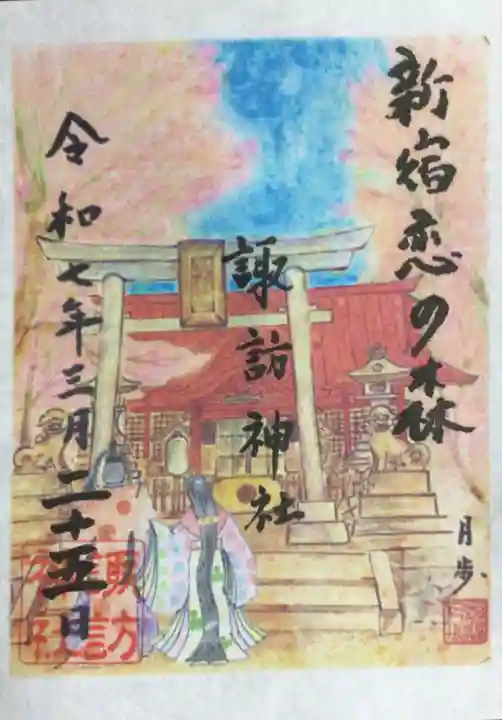 新宿恋の森
諏訪神社
令和七年三月二十五日
月歩
諏訪
神社